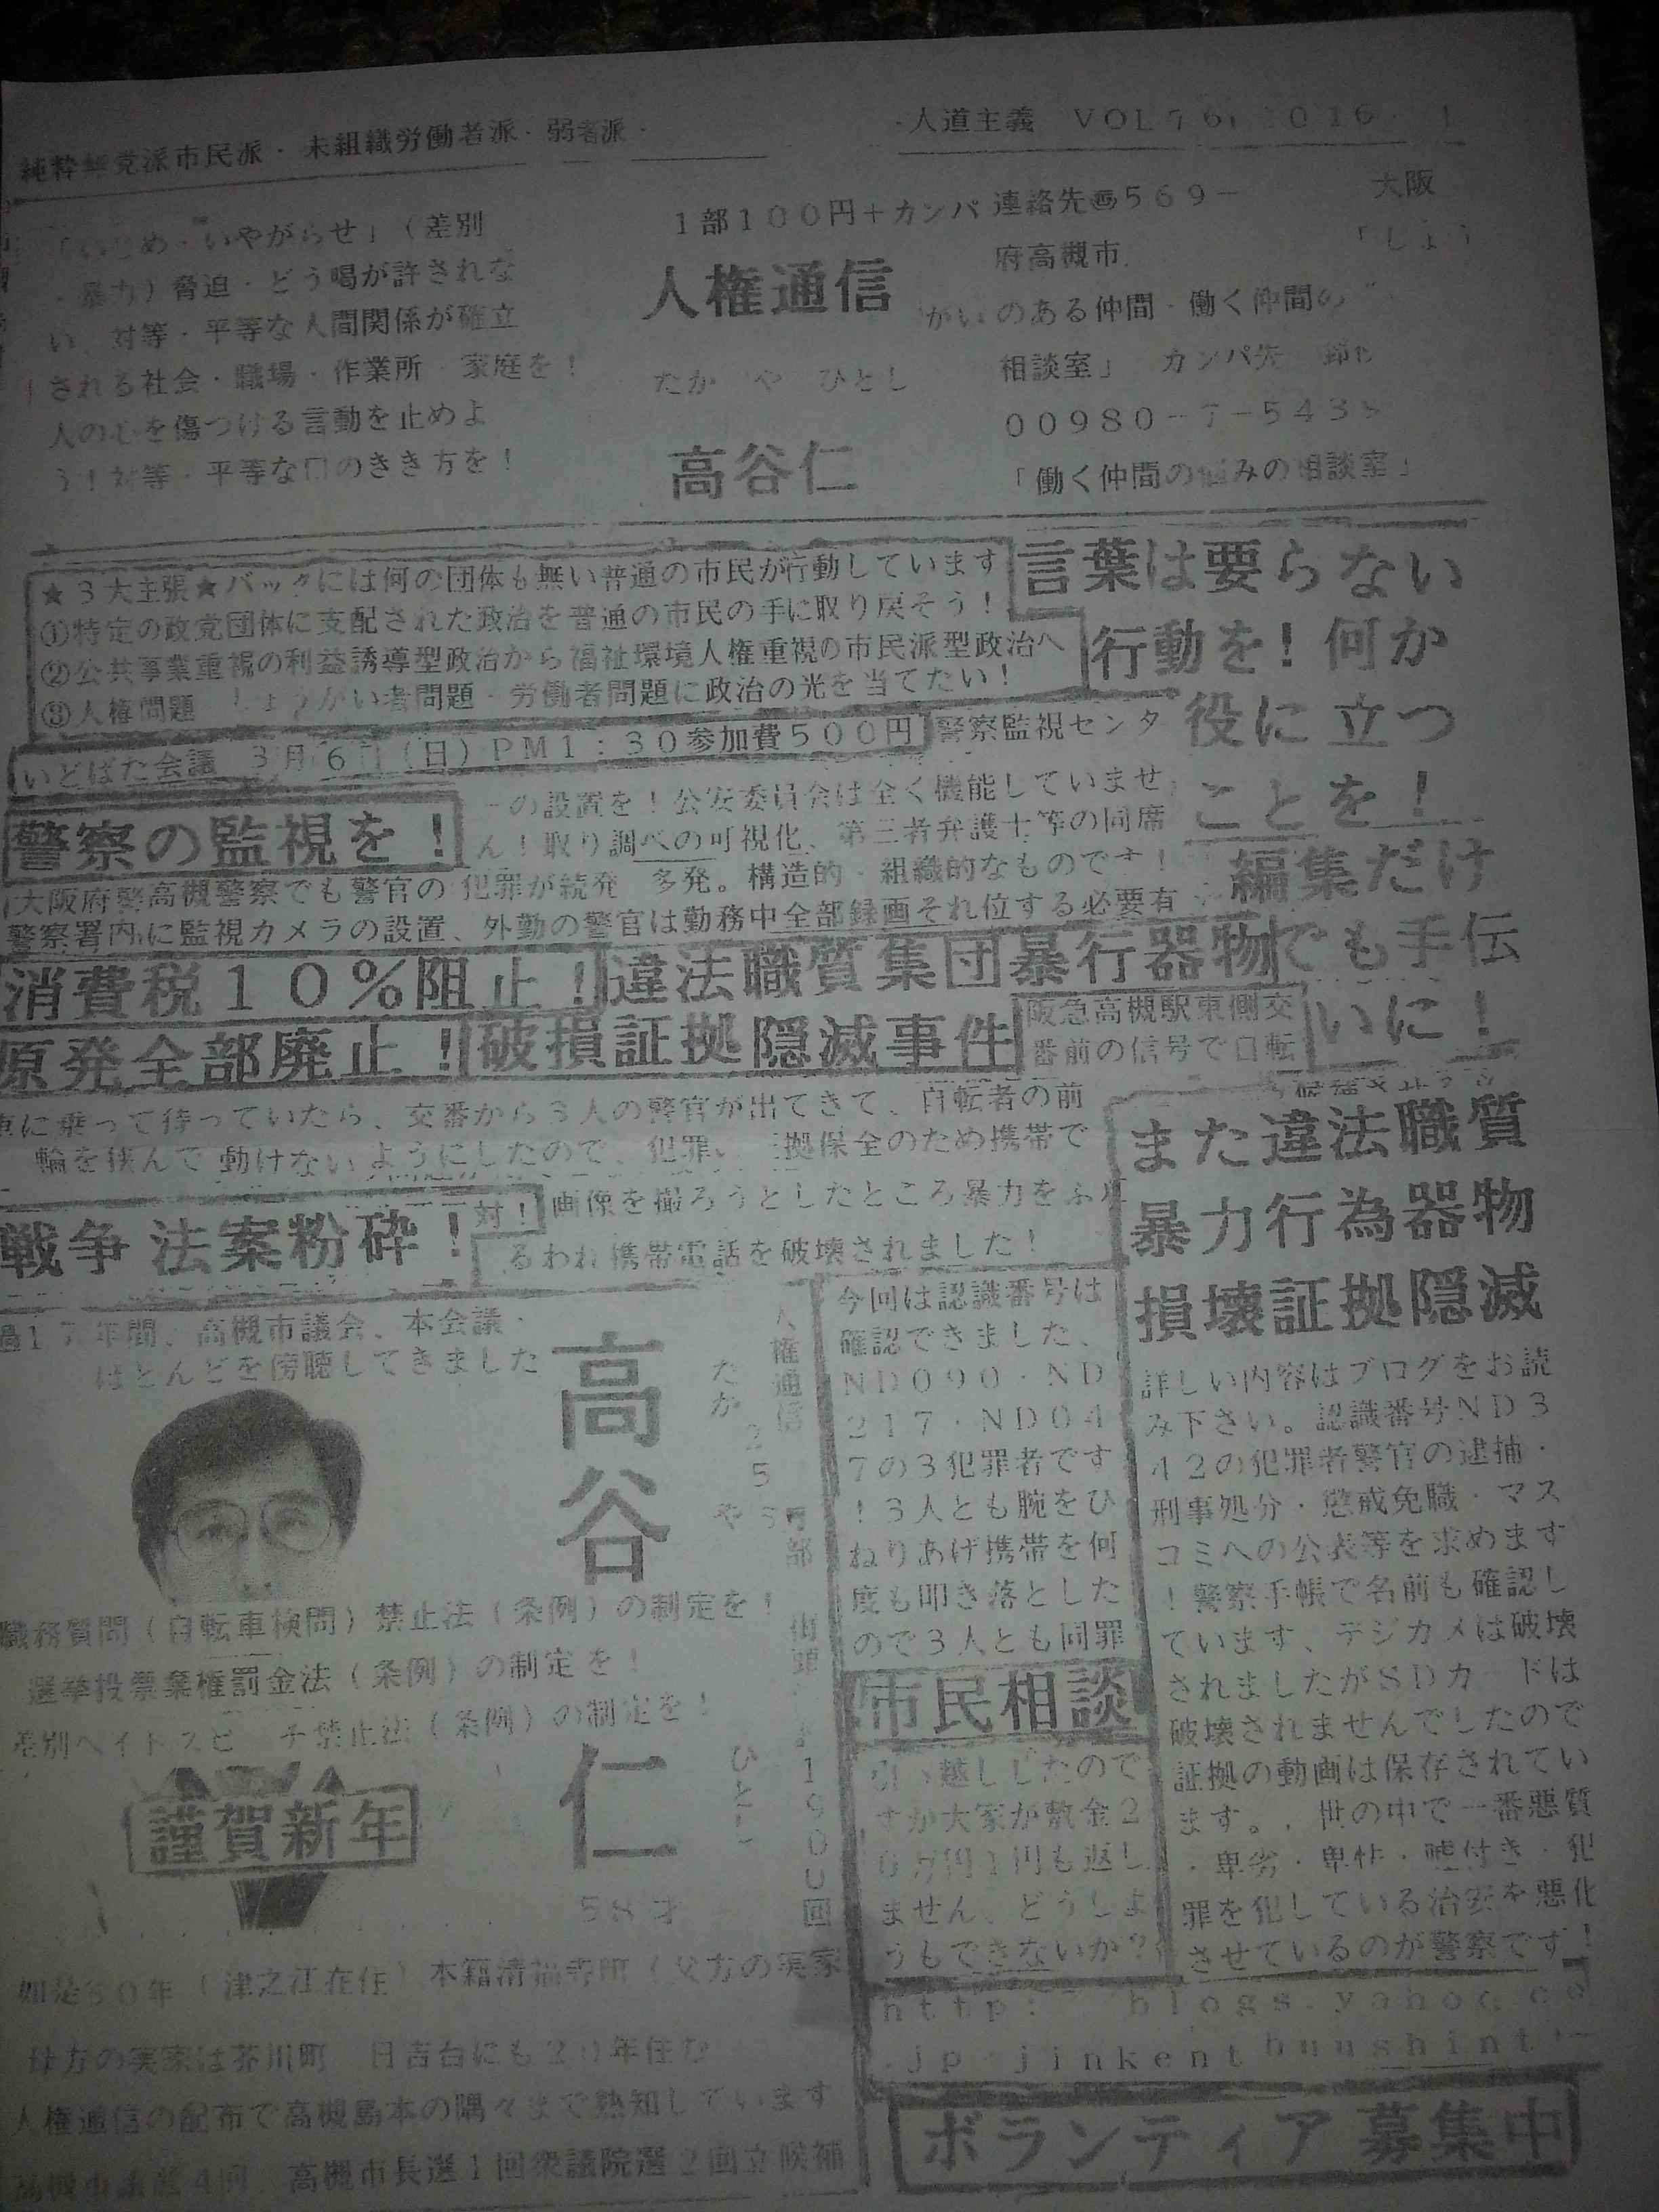 純粋無党派市民派・未組織労働者派・弱者派・
・人道主義 VOL
「いじめ・いやがらせ」（差別
・暴力）脅迫・どう喝が許されな
い、対等・平等な人間関係が確立
される社会・職場・作業所・家庭を！
人の心を傷つける言動を止めよ
う！対等・平等な口のきき方を！
1部100円＋カンパ
人権通信
たか や ひとし
高谷仁
連絡先 569－ 大阪
府高槻市 「しょう
がいのある仲間・働く仲間の
相談室」 カンパ先
00980－7－543
「働く仲間の悩みの相談室」
★3大主張★バックには何の団体も無い普通の市民が行動しています
①特定の政党団体に支配された政治を普通の市民の手に取り戻そう！
②公共事業重視の利益誘導型政治から福祉環境人権重視の市民派型政治へ
③人権問題 しょうがい者問題・労働者問題に政治の光を当てたい！
いどばた会議 3月6日（日）PM1：30参加費500円
言葉は要らない
行動を！何か
役に立つ
ことを！
編集だけ
でも手伝
いに！
警察の監視を！
警察監視センタ
ーの設置を！公安委員会は全く機能していませ
ん！取り調べの可視化、第三者弁護士等の同席
大阪府警高槻警察でも警官の犯罪が続発 多発。構造的・組織的なものです！
警察署内に監視カメラの設置、外勤の警官は勤務中全部録画それ位する必要有
消費税10％阻止！
原発全部廃止！
違法職質集団暴行器物
破損証拠隠滅事件
阪急高槻駅東側交
番前の信号で自転
車に乗って待っていたら、交番から3人の警官が出てきて、自転者の前
輪を挟んで動けないようにしたので、犯罪 拠保全のため携帯で
画像を撮ろうとしたところ暴力をふ
るわれ携帯電話を破壊されました！
戦争法案粉砕！
対！
過17年間、高槻市議会、本会議・
ほとんどを傍聴してきました
高谷仁
たか や ひとし
58才
人権通信
号部
街頭
1900回
職務質問（自転車検問）禁止法（条例）の制定を！
選挙投票棄権罰金法（条例）の制定を！
差別ヘイトスピーチ禁止法（条例）の制定を！
謹賀新年
如是30年（津之江在住）本籍清福寺町（父方の実家
母方の実家は芥川町 日吉台にも20年住
人権通信の配布で高槻島本の隅々まで熟知しています
高槻市議選4回 高槻市長選1回衆議院選2回立候補
今回は認識番号は
確認できました、
ND090・ND
217・ND04
7の3犯罪者です
！3人とも腕をひ
ねりあげ携帯を何
度も叩き落とした
ので3人とも同罪
市民相談
引っ越しじたので
すが大家が敷金2
0万円1円も返し
ません、どうしよ
うもできないか？
また違法職質
暴力行為器物
損壊証拠隠滅
詳しい内容はブログをお読
み下さい。認識番号ND3
42の犯罪者警官の逮捕・
刑事処分・懲戒免職・マス
コミへの公表等を求めます
！警察手帳で名前も確認し
ています、デジカメは破壊
されましたがSDカードは
破壊されませんでしたので
証拠の動画は保存されてい
ます。．世の中で一番悪質
・卑劣・卑怯・嘘付き・犯
罪を犯している治安を悪化
させているのが警察です！
http: blogs.yahoo.co
.jp jinkent
ボランティア募集中